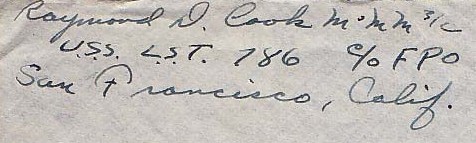 Raymond D. Cook M.M.M 3/c
U.S.S. L.S.T. 786 c/o FPO
San Francisco, Calif.